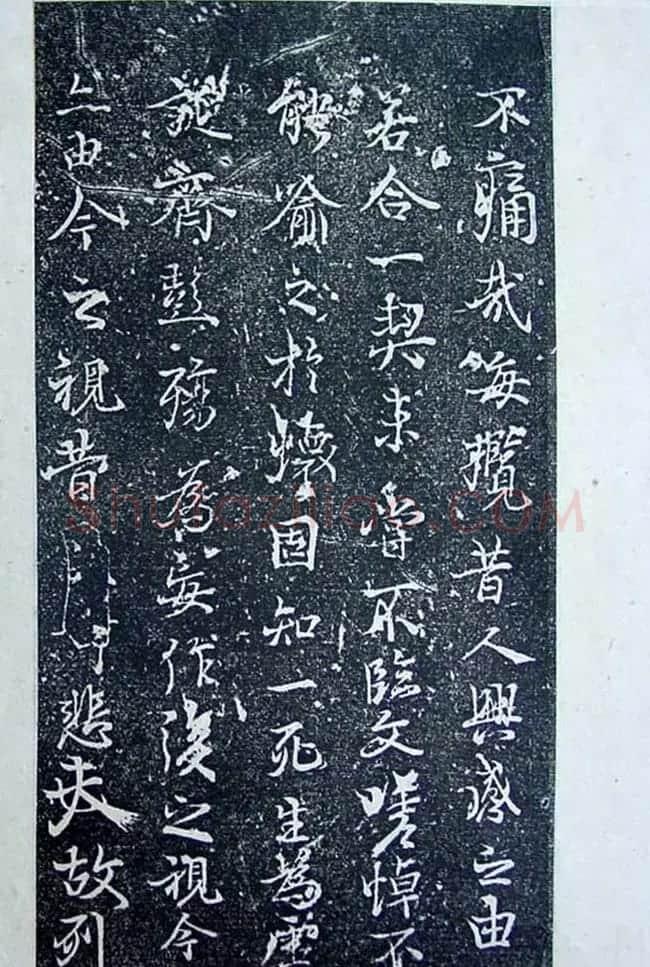 不痛哉每攬昔人興感之由
若合一契未嘗不臨文嗟悼不
能喻之於懷固知一死生為虛
誕齊彭殤為妄作後之視今
亦由今之視昔悲夫故列
Shufaziliao.COM